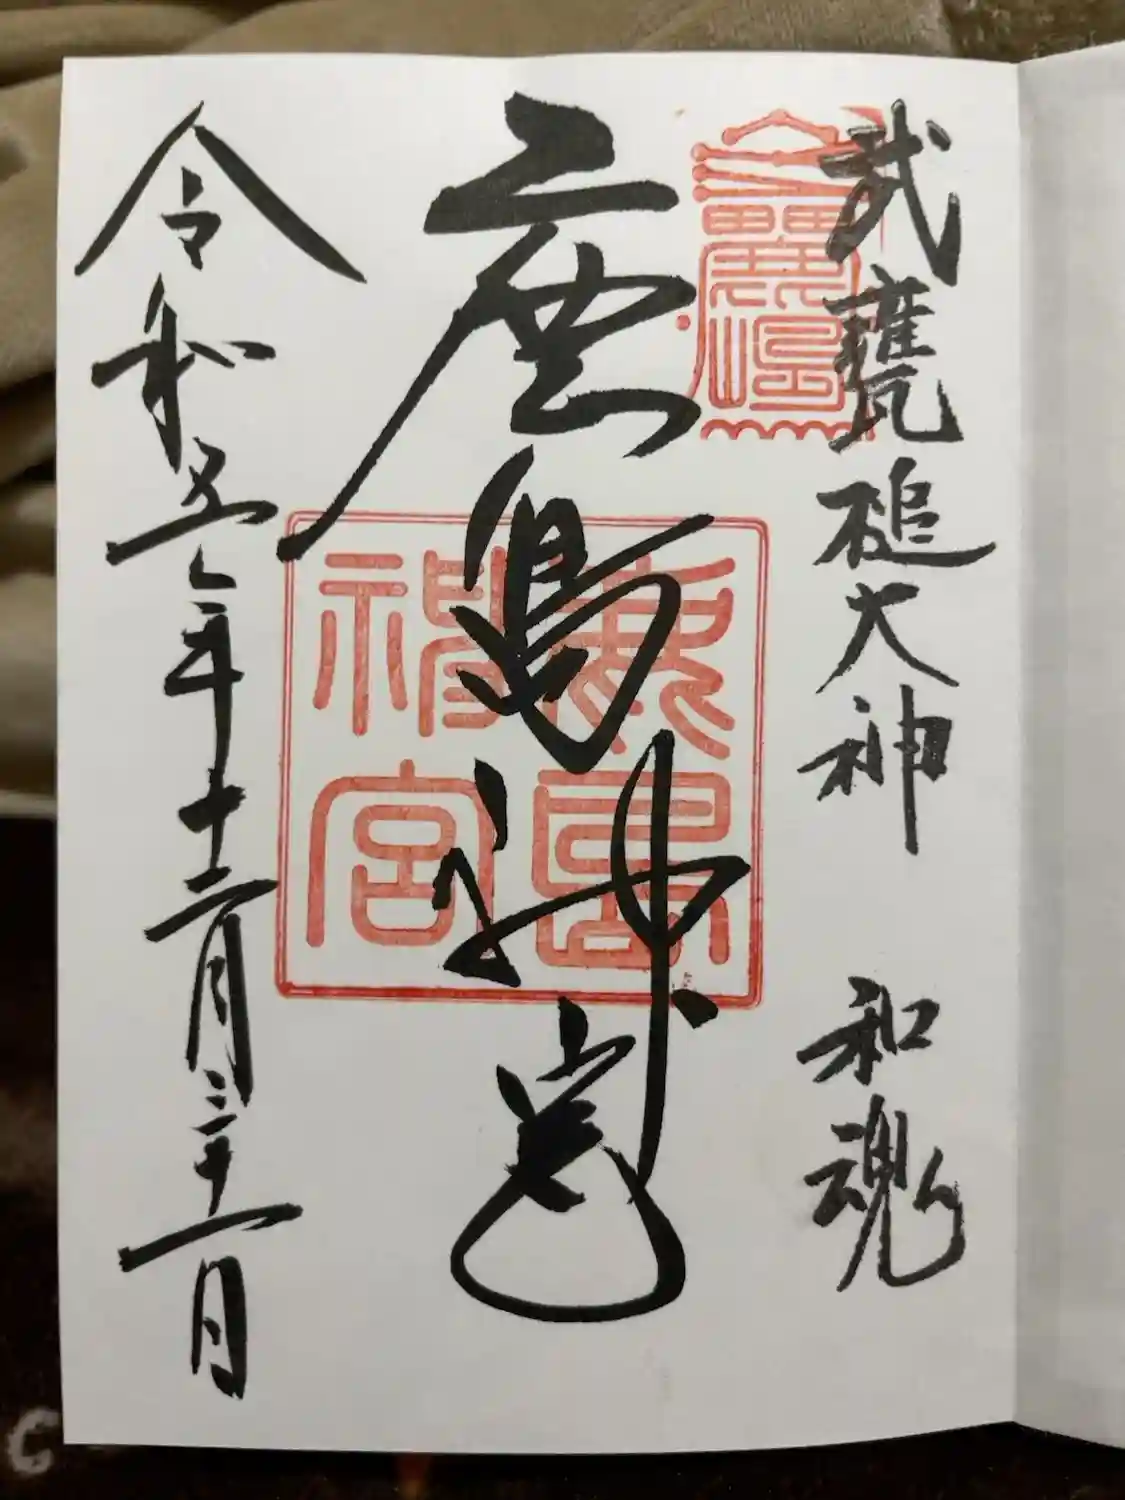 武甕槌大神 和魂
鹿島神宮
鹿島神宮
令和五年十二月三十一日